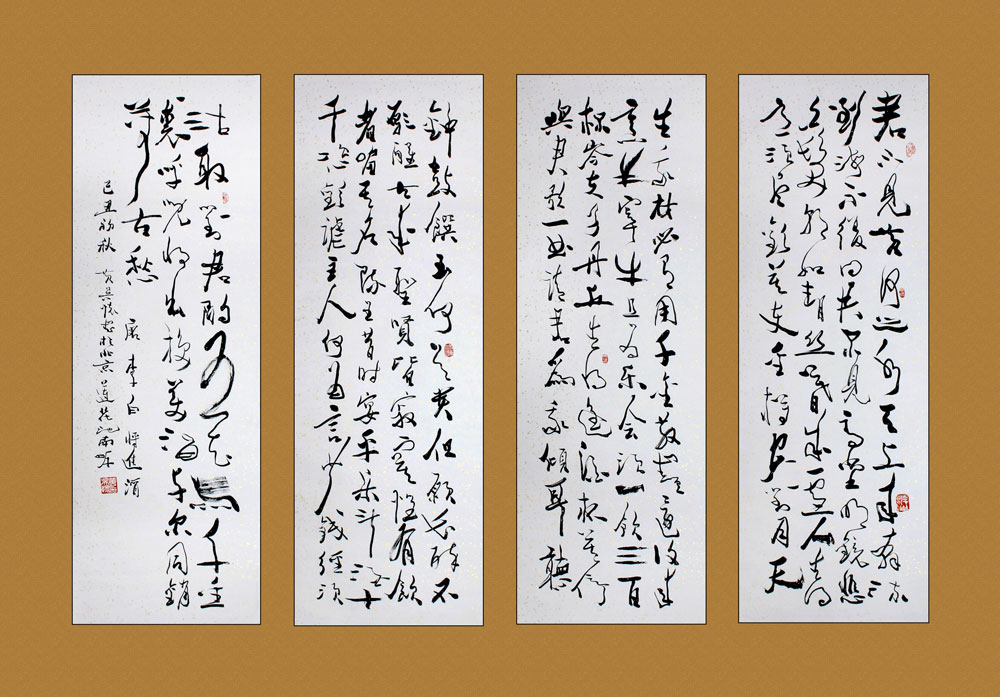 君不見黃河之水天上來奔流
到海不復回君不見高堂明鏡悲
白髮朝如青絲暮成雪人生得
意須盡歡莫使金樽空對月天
生我材必有用千金散盡還復來
烹羊宰牛且為樂會須一飲三百
杯岑夫子丹丘生將進酒杯莫停
與君歌一曲請君為我傾耳聽
鐘鼓饌玉何足貴但願長醉不
願醒古來聖賢皆寂寞惟有飲
者留其名陳王昔時宴平樂斗酒十
千恣歡謔主人何為言少錢徑須
沽取對君酌五花馬千金
裘呼兒將出換美酒與爾同銷
萬古愁
唐李白將進酒
己丑初秋 於北京蓮花池南畔